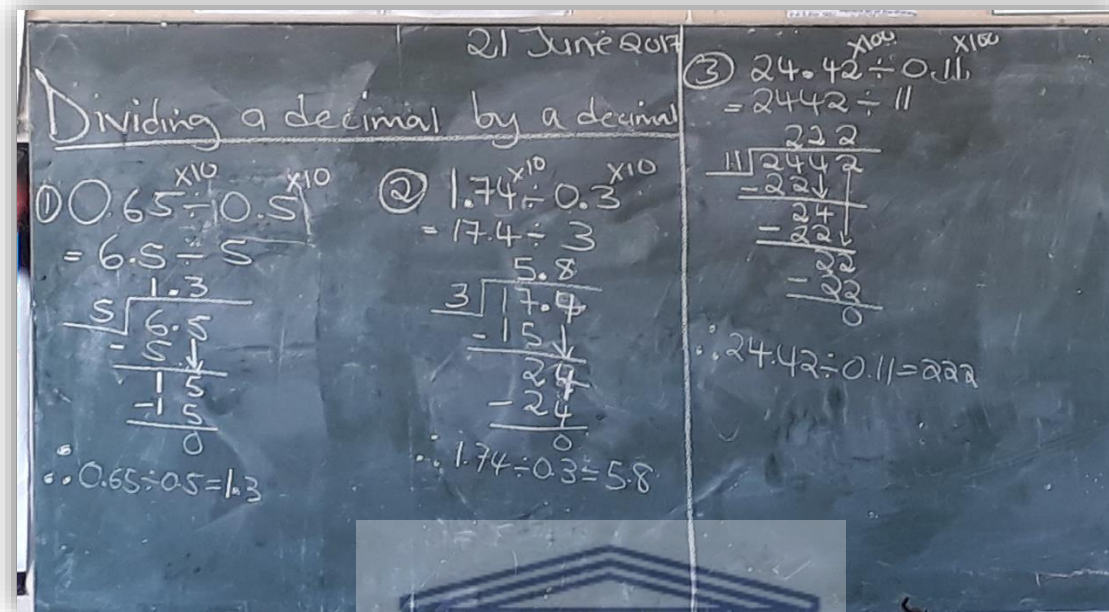 21 June 2017
Dividing a decimal by a decimal
① 0.65 ×10 ÷ 0.5 ×10
= 6.5 ÷ 5
1.3
5 6.5
- 5
1 5
-1 5
0
∴ 0.65÷0.5=1.3
② 1.74 ×10 ÷ 0.3 ×10
= 17.4 ÷ 3
5.8
3 17.4
- 15
24
- 24
0
∴ 1.74÷0.3=5.8
③ 24.42 ×100 ÷ 0.11 ×100
= 2442 ÷ 11
222
11 2442
- 22
24
- 22
22
- 22
0
∴ 24.42÷0.11=222